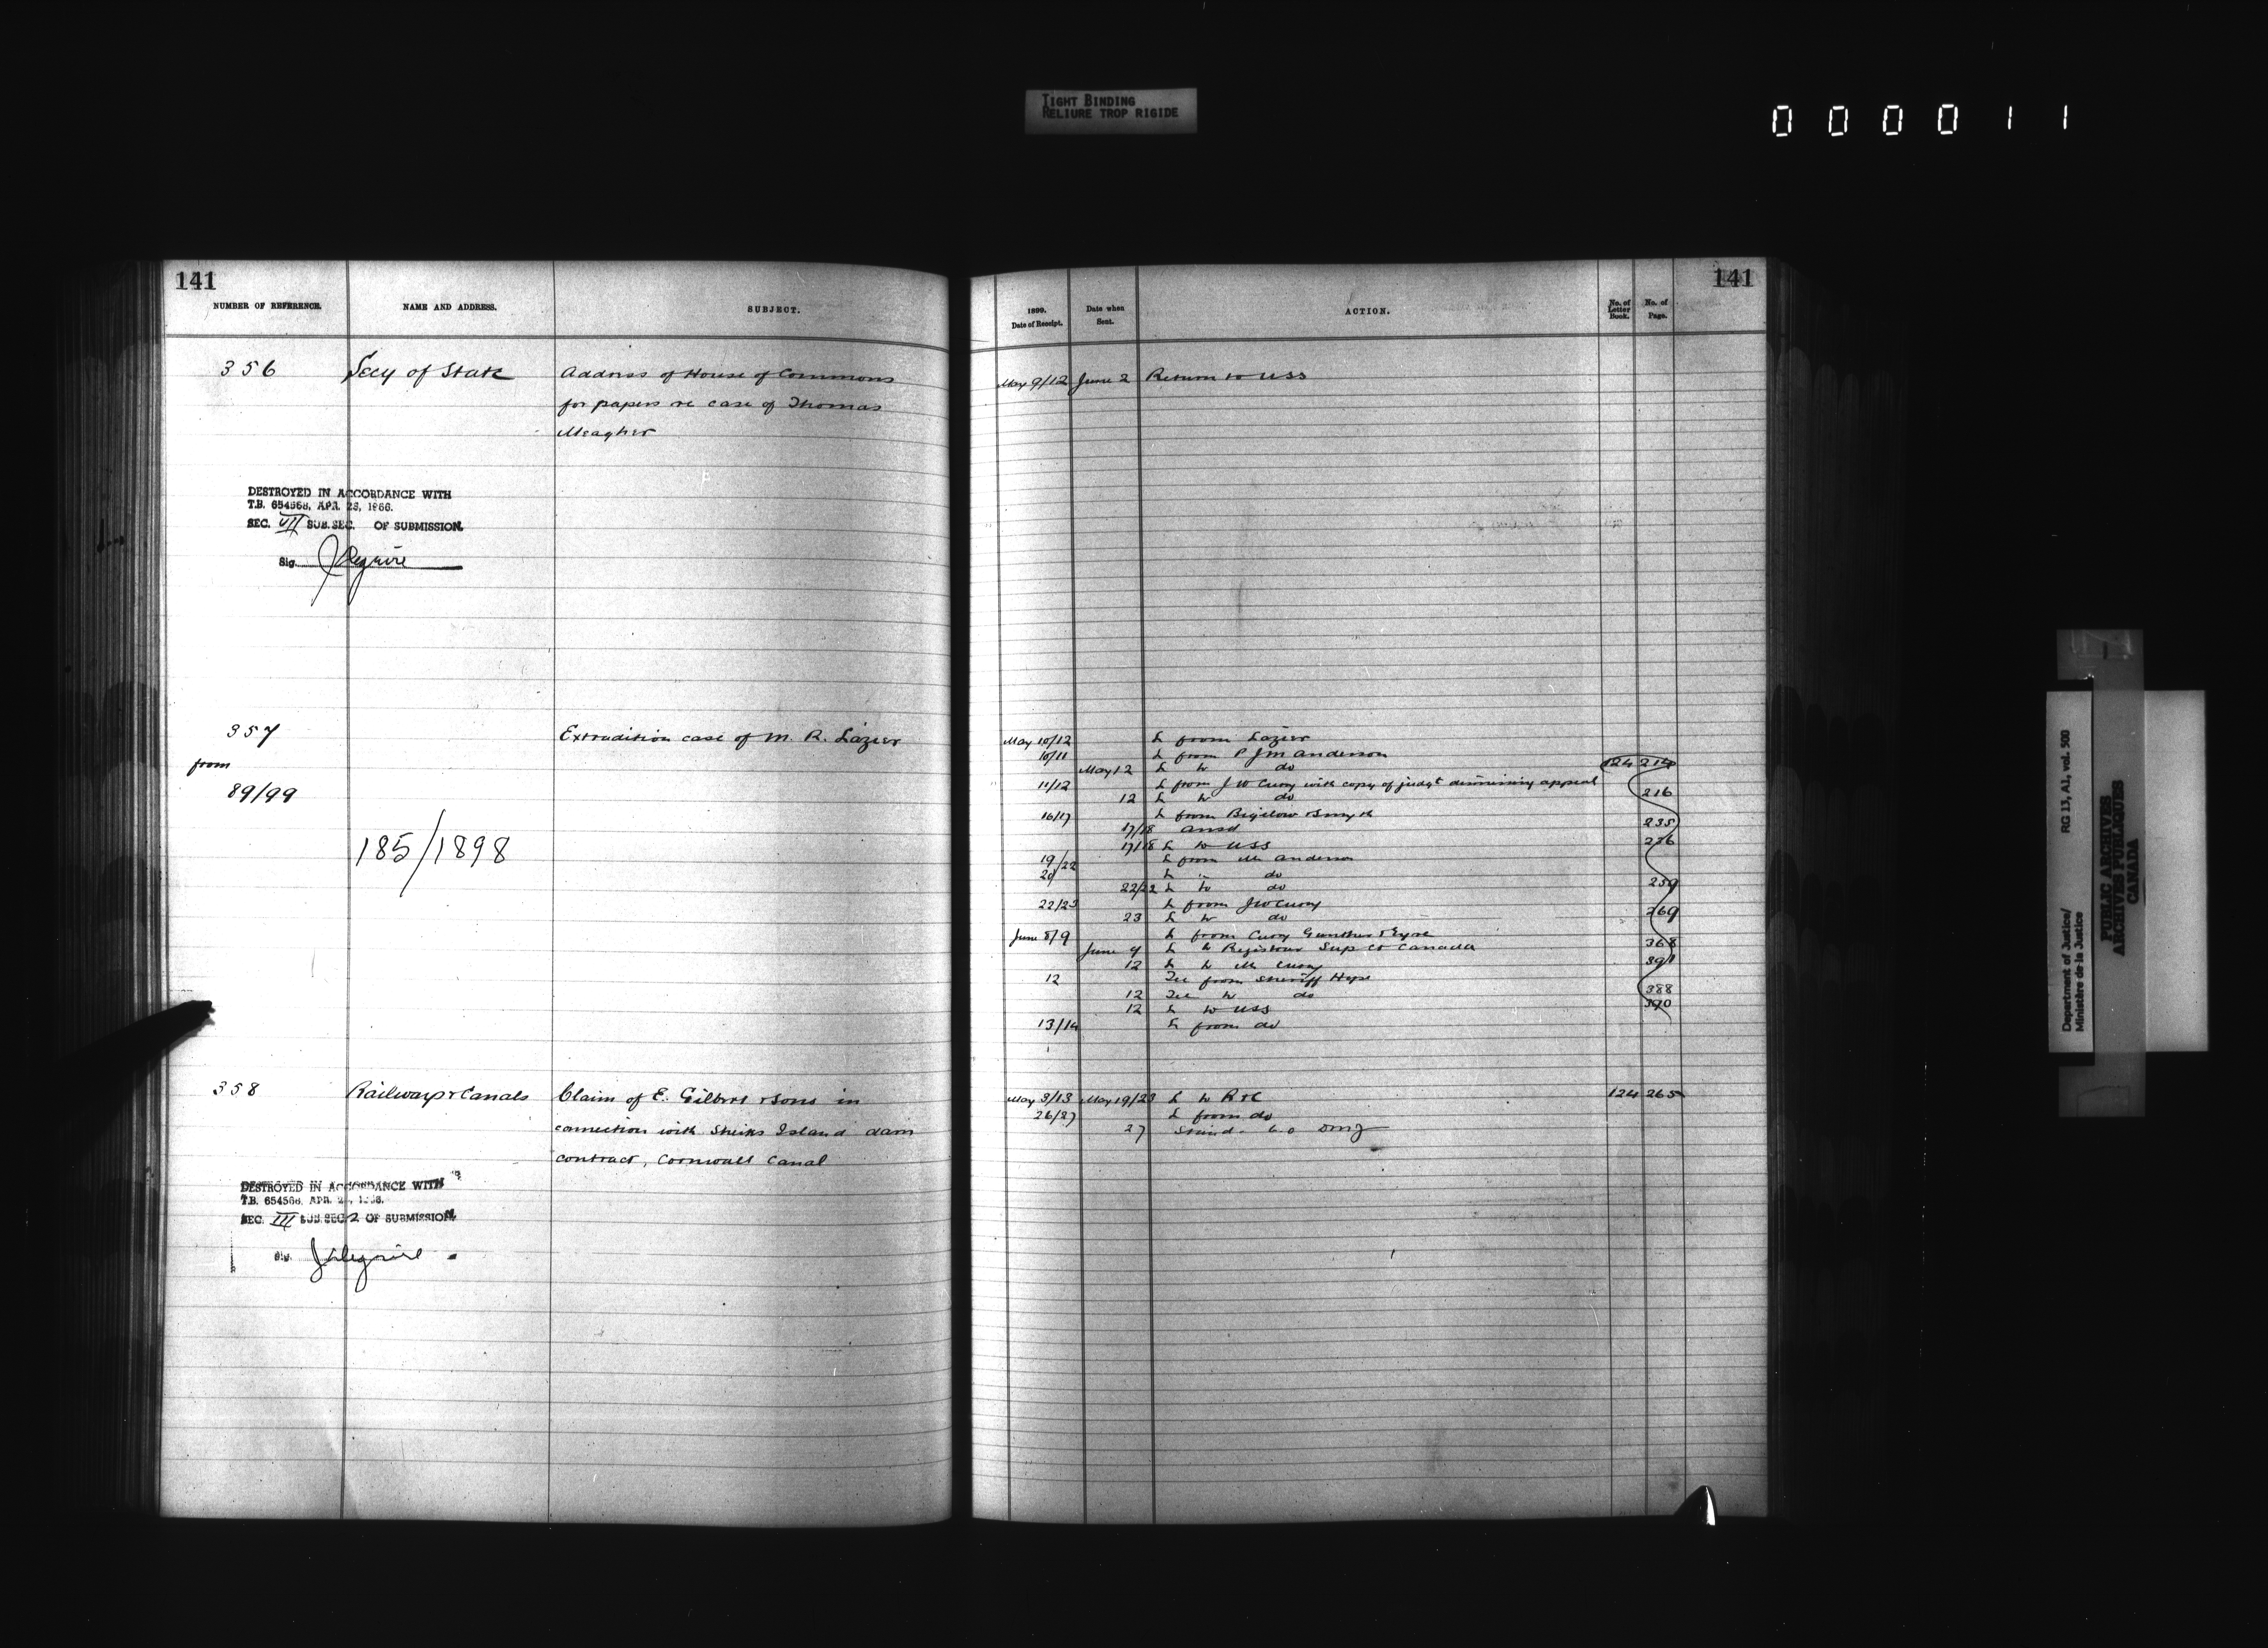 TIGHT BINDING
RELIURE TROP RIGIDE
000011
141
NUMBER OF REFERENCE.
NAME AND ADDRESS.
SUBJECT.
356
Secy of State
Address of House of Commons
for papers re case of Thomas
Meagher
DESTROYED IN ACCORDANCE WITH
T.B. 654568, APR. 28, 1966.
SEC. VII SUB.SEC. OF SUBMISSION.
Sig.
357
Extradition case of M. R. Lazier
from
89/99
185/1898
358
Railways & Canals
Claim of E. Gilbert & Sons in
connection with Sheiks Island dam
contract, Cornwall Canal
DESTROYED IN ACCORDANCE WITH
T.B. 654568, APR. 28, 1966.
SEC. III SUB.SEC. 2 OF SUBMISSION.
Sig.
141
1899.
Date of Receipt.
Date when
Sent.
ACTION.
No. of
Letter
Book.
No. of
Page.
May 9/12 June 2 Return to USS
May 10/12 L from Lazier
10/11 L from P J M Anderson
May 12 L to do 124 214
11/12 L from J W Curry with copy of judgt dismissing appeal
12 L to do 216
16/17 L from Bigelow & Smyth
17/18 ansd 235
17/18 L to USS 236
19/22 L from Mr Anderson
20 L " do
22/22 L to do 259
22/23 L from J W Curry
23 L to do 269
June 8/9 L from Curry Gunther & Eyre
June 9 L to Registrar Sup Ct Canada 368
12 L to Mr Curry 391
12 Tel from Sheriff Hope
12 Tel to do 388
12 L to USS 390
13/14 L from do
May 3/13 May 19/23 L to R & C 124 265
26/27 L from do
27
Department of Justice/
Ministère de la Justice
RG 13, A1, vol. 500
PUBLIC ARCHIVES
ARCHIVES PUBLIQUES
CANADA